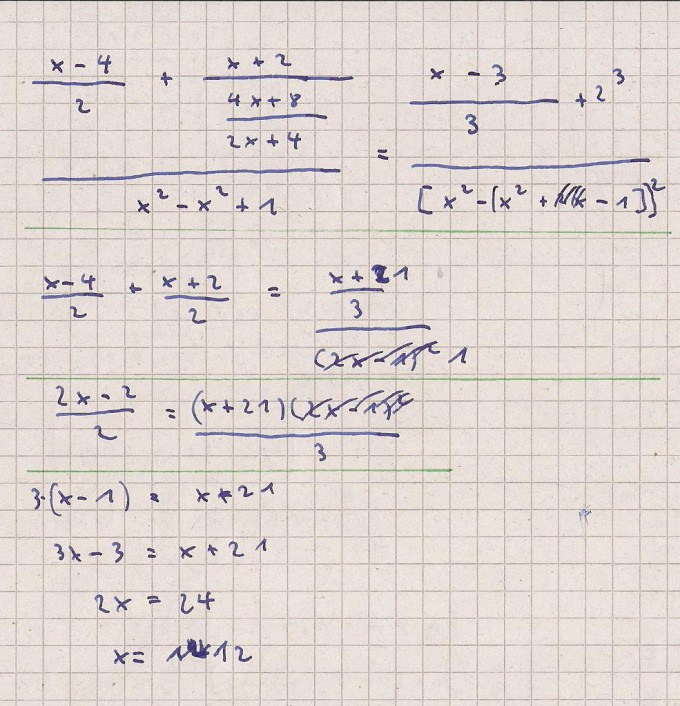 x - 4 / 2 + x + 2 / (4x + 8 / 2x + 4) = x - 3 / 3 + 2³
x² - x² + 1 [x² - (x² + - 1)]²
x - 4 / 2 + x + 2 / 2 = x + 21 / 3
1
2x - 2 / 2 = (x + 21) / 3
3·(x - 1) = x + 21
3x - 3 = x + 21
2x = 24
x = 12